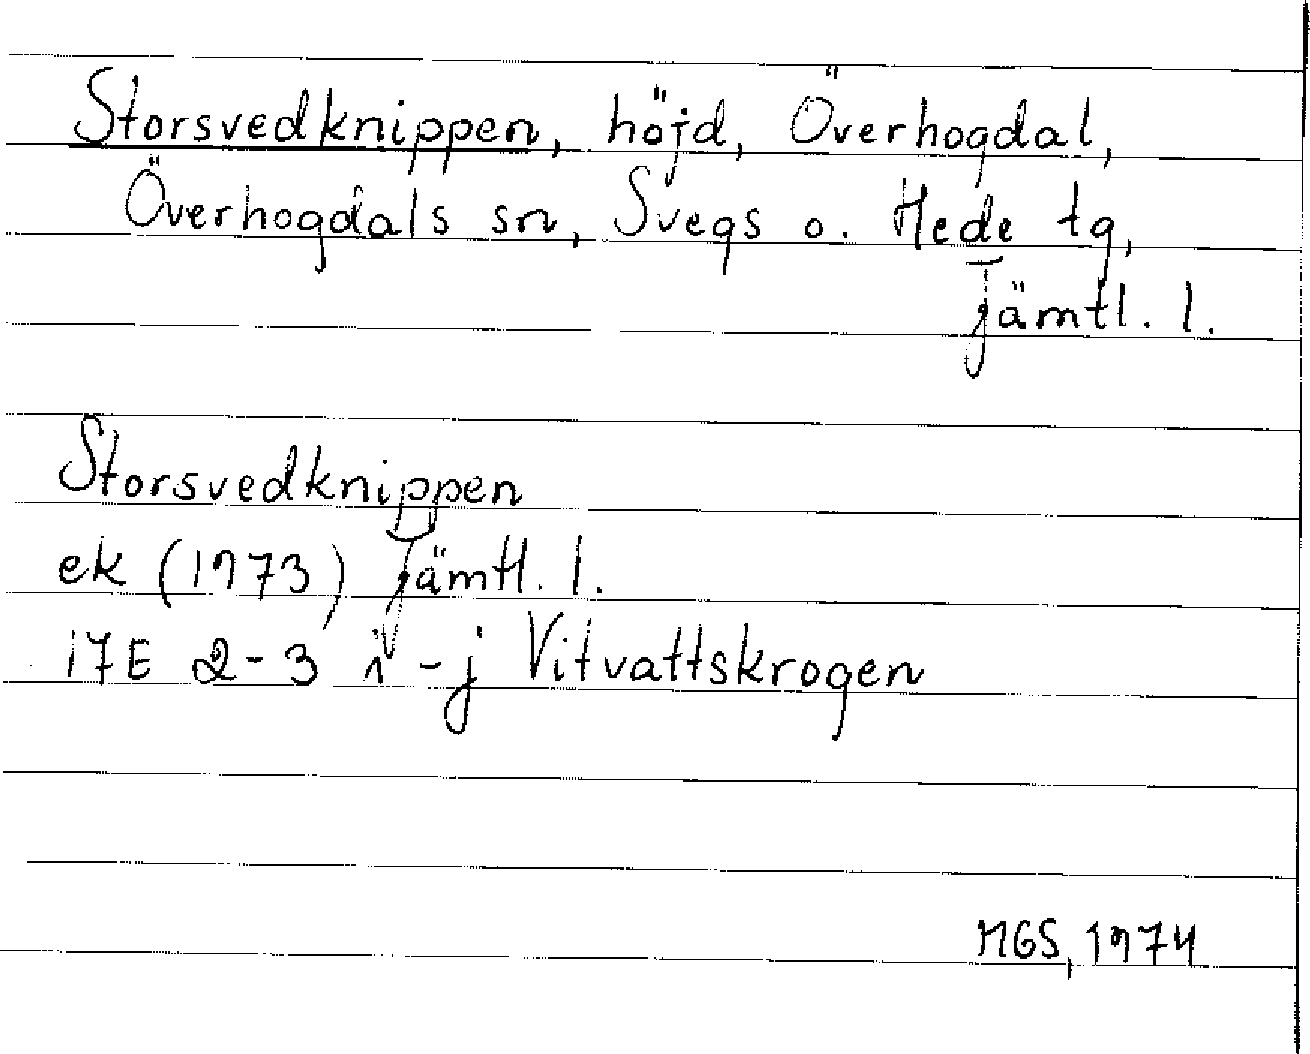 Storsvedknippen, höjd, Överhogdal,
Överhogdals sn, Svegs o. Hede tg,
Jämtl. l.
Storsvedknippen
ek (1973) Jämtl. l.
17E 2-3 i-j Vitvattskrogen
MGS, 1974